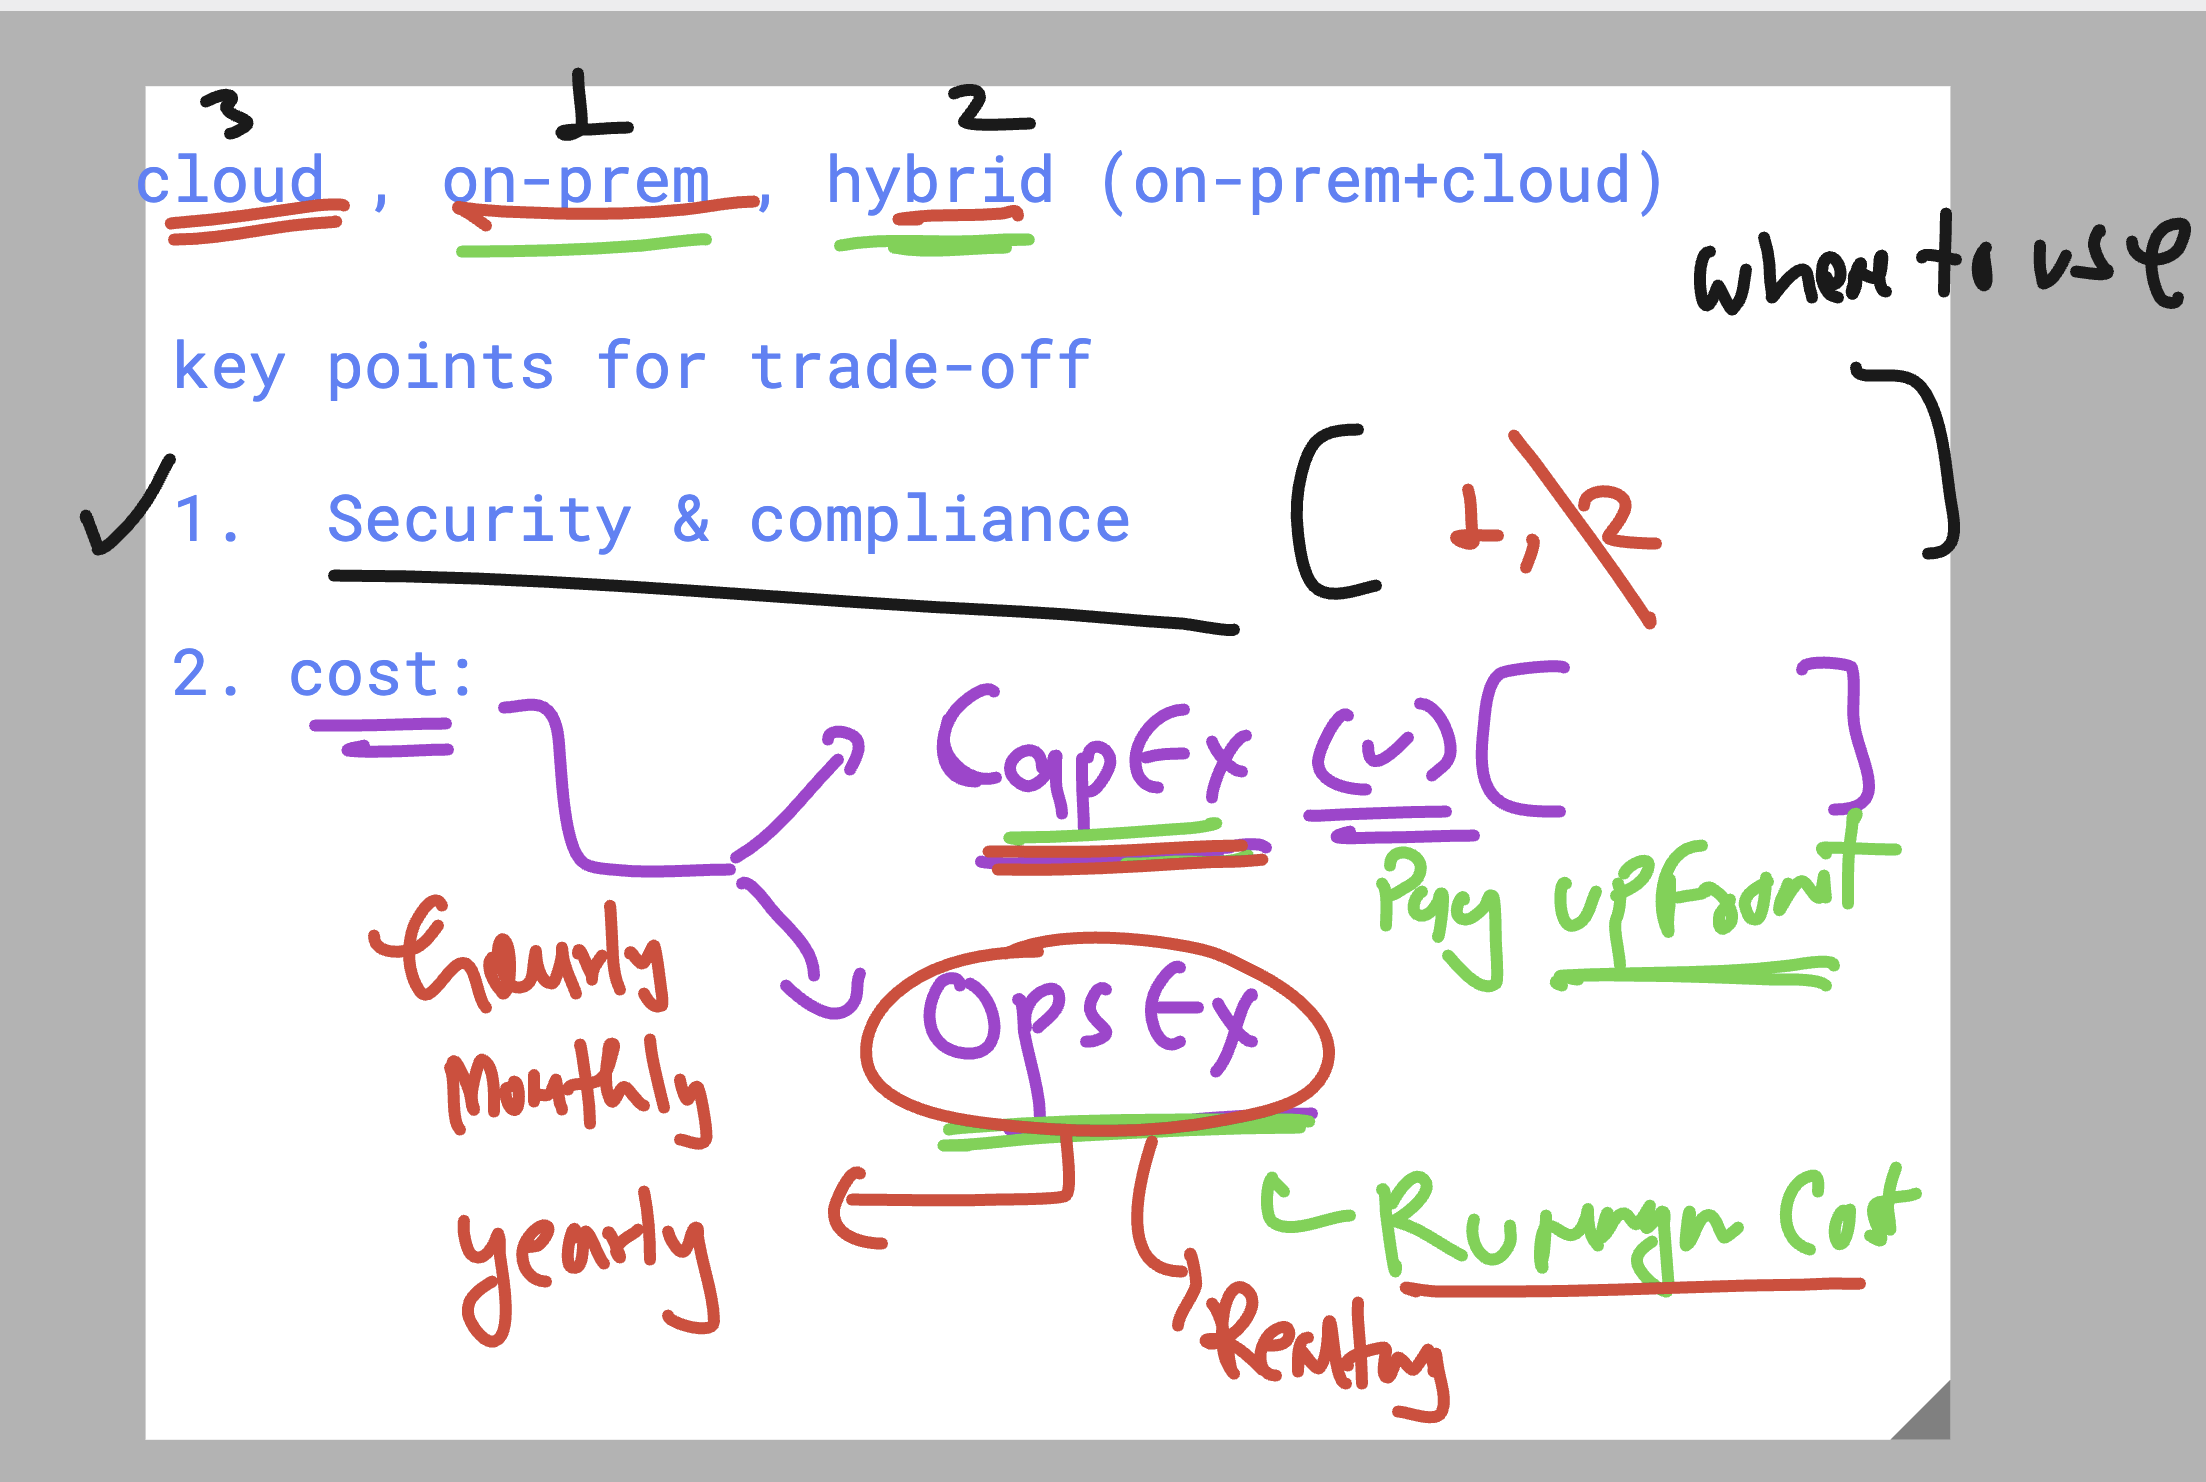 3 1 2
cloud , on-prem , hybrid (on-prem+cloud)
where to use
key points for trade-off
1. Security & compliance [ 1, 2 ]
2. cost:
CapEx (v) [ ]
Pay upfront
Hourly
OpsEx
Monthly
Cost
yearly
Renting